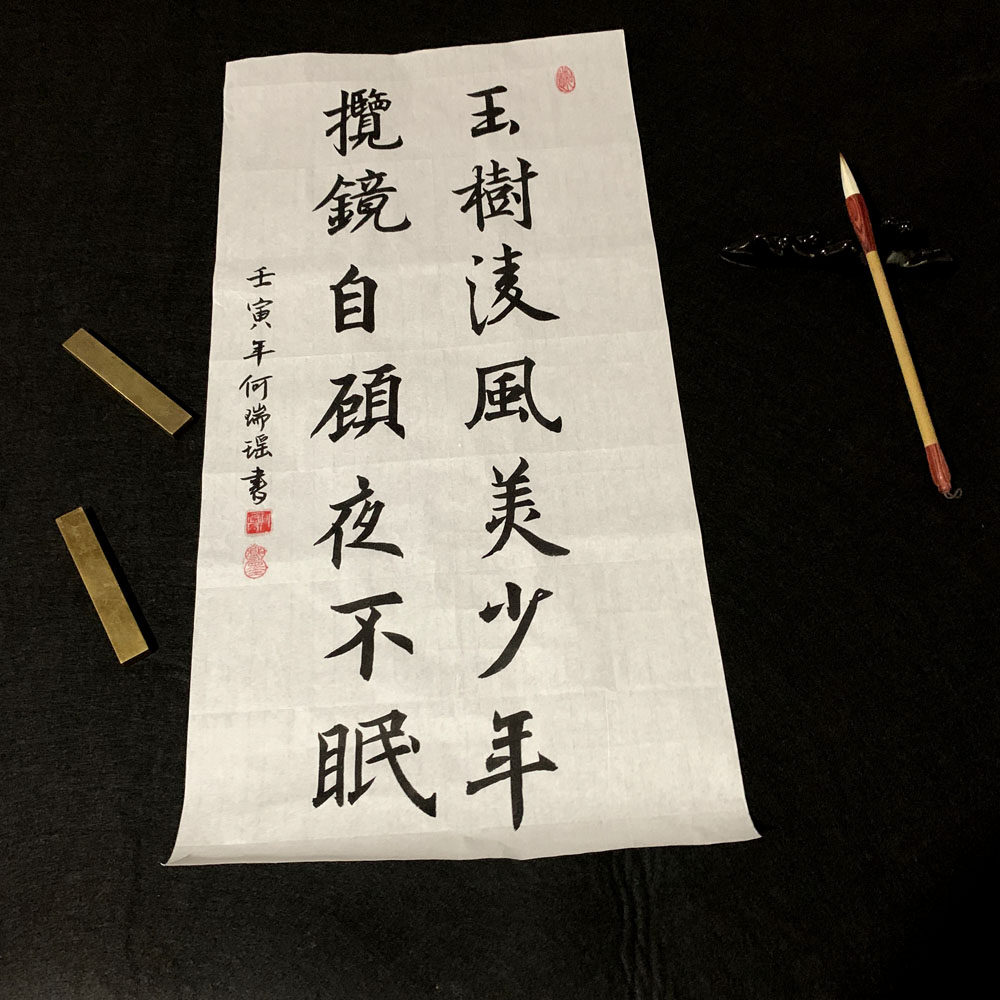 玉樹淩風美少年
攬鏡自顧夜不眠
壬寅年何瑞瑶書